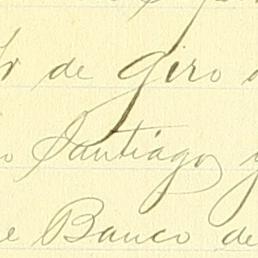 de giro
Santiago y
e Banco de